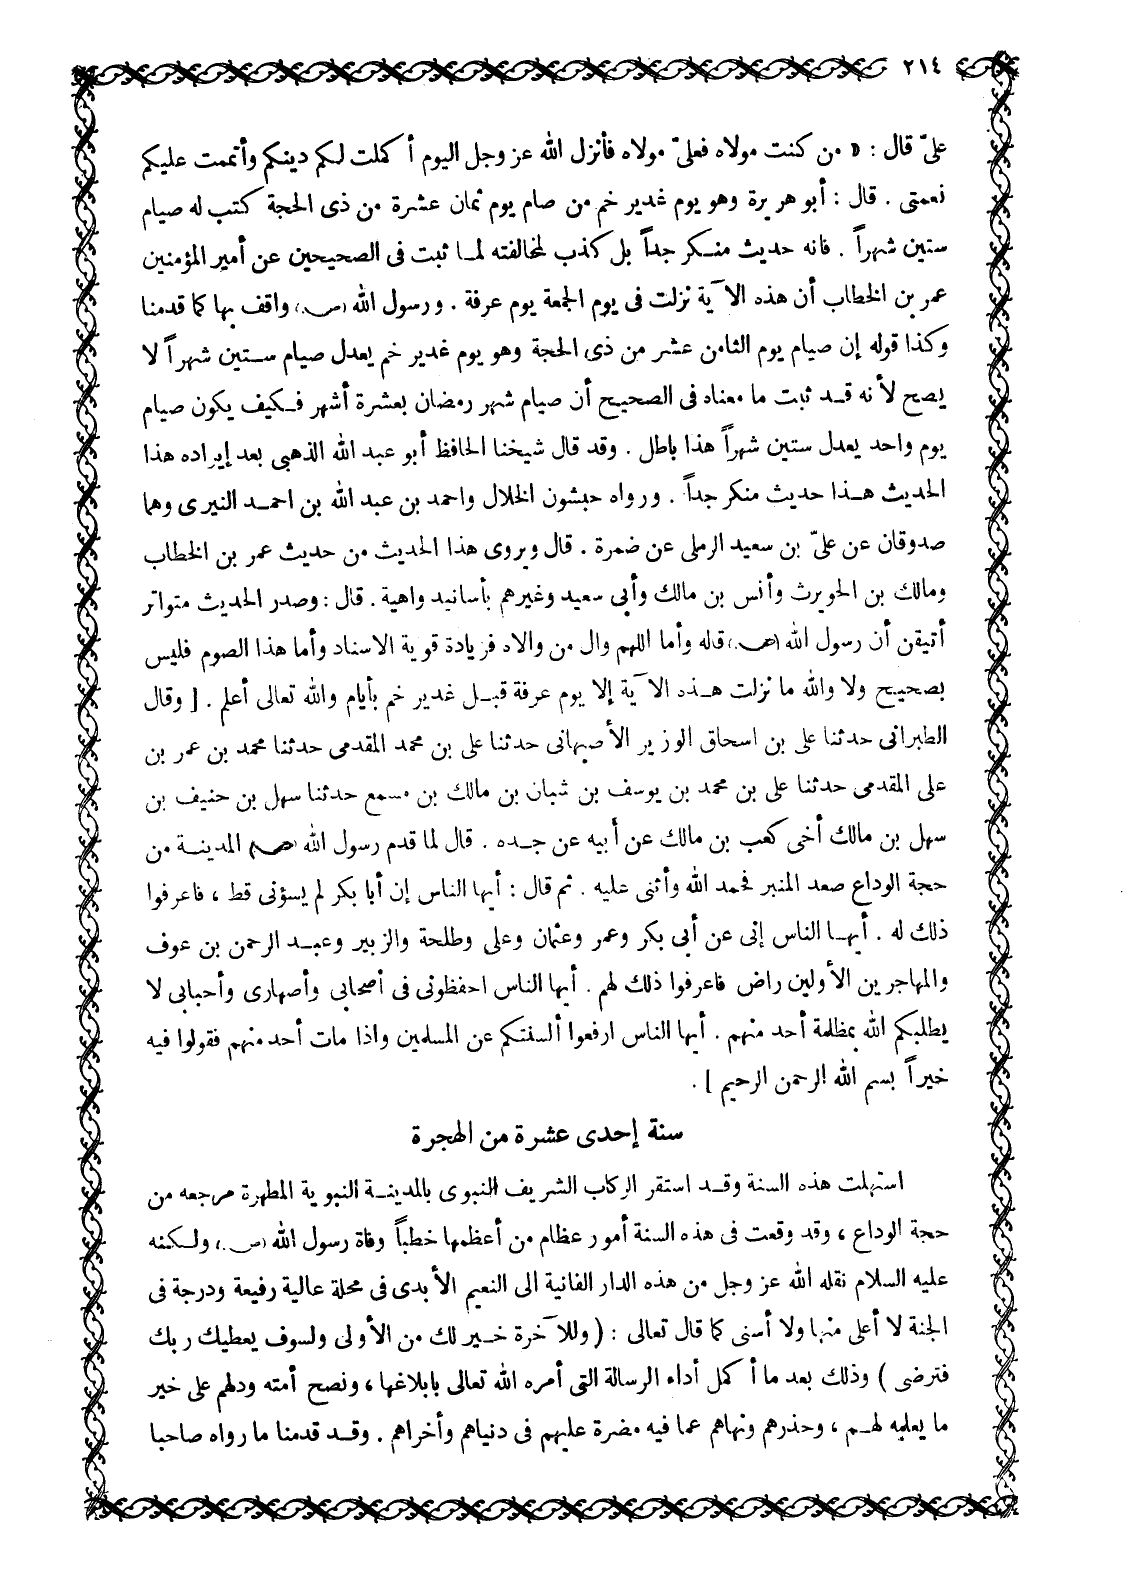 ٢١٤
علىّ قال : « من كنت مولاه فعلىّ مولاه فأنزل الله عز وجل اليوم أكملت لكم دينكم وأتممت عليكم
نعمتى . قال : أبو هريرة وهو يوم غدير خم من صام يوم ثمان عشرة من ذى الحجة كتب له صيام
ستين شهراً . فانه حديث منكر جداً بل كذب لمخالفته لما ثبت فى الصحيحين عن أمير المؤمنين
عمر بن الخطاب أن هذه الآية نزلت فى يوم الجمعة يوم عرفة . ورسول الله (ص.) واقف بها كما قدمنا
وكذا قوله إن صيام يوم الثامن عشر من ذى الحجة وهو يوم غدير خم يعدل صيام ستين شهراً لا
يصح لأنه قد ثبت ما معناه فى الصحيح أن صيام شهر رمضان بعشرة أشهر فكيف يكون صيام
يوم واحد يعدل ستين شهراً هذا باطل . وقد قال شيخنا الحافظ أبو عبد الله الذهبى بعد إيراده هذا
الحديث هذا حديث منكر جداً . ورواه حبشون الخلال واحمد بن عبد الله بن احمد النيرى وهما
صدوقان عن علىّ بن سعيد الرملى عن ضمرة . قال ويروى هذا الحديث من حديث عمر بن الخطاب
ومالك بن الحويرث وأنس بن مالك وأبى سعيد وغيرهم بأسانيد واهية . قال : وصدر الحديث متواتر
أتيقن أن رسول الله (ص.) قاله وأما اللهم وال من والاه فزيادة قوية الاسناد وأما هذا الصوم فليس
بصحيح ولا والله ما نزلت هذه الآية إلا يوم عرفة قبل غدير خم بأيام والله تعالى أعلم . [ وقال
الطبرانى حدثنا على بن اسحاق الوزير الأصبهانى حدثنا على بن محمد المقدمى حدثنا محمد بن عمر بن
على المقدمى حدثنا على بن محمد بن يوسف بن شبان بن مالك بن مسمع حدثنا سهل بن حنيف بن
سهل بن مالك أخى كعب بن مالك عن أبيه عن جده . قال لما قدم رسول الله (ص) المدينة من
حجة الوداع صعد المنبر فحمد الله وأثنى عليه . ثم قال : أيها الناس إن أبا بكر لم يسؤنى قط ، فاعرفوا
ذلك له . أيها الناس إنى عن أبى بكر وعمر وعثمان وعلى وطلحة والزبير وعبد الرحمن بن عوف
والمهاجرين الأولين راض فاعرفوا ذلك لهم . أيها الناس احفظونى فى أصحابى وأصهارى وأحبابى لا
يطلبكم الله بمظلمة أحد منهم . أيها الناس ارفعوا ألسنتكم عن المسلمين واذا مات أحد منهم فقولوا فيه
خيراً بسم الله الرحمن الرحيم ] .
سنة إحدى عشرة من الهجرة
استهلت هذه السنة وقد استقر الركاب الشريف النبوى بالمدينة النبوية المطهرة مرجعه من
حجة الوداع ، وقد وقعت فى هذه السنة أمور عظام من أعظمها خطباً وفاة رسول الله (ص.) ولكنه
عليه السلام نقله الله عز وجل من هذه الدار الفانية الى النعيم الأبدى فى محلة عالية رفيعة ودرجة فى
الجنة لا أعلى منها ولا أسنى كما قال تعالى : ( وللآخرة خير لك من الأولى ولسوف يعطيك ربك
فترضى ) وذلك بعد ما أكمل أداء الرسالة التى أمره الله تعالى بابلاغها ، ونصح أمته ودلهم على خير
ما يعلمه لهم ، وحذرهم ونهاهم عما فيه مضرة عليهم فى دنياهم وأخراهم . وقد قدمنا ما رواه صاحبا